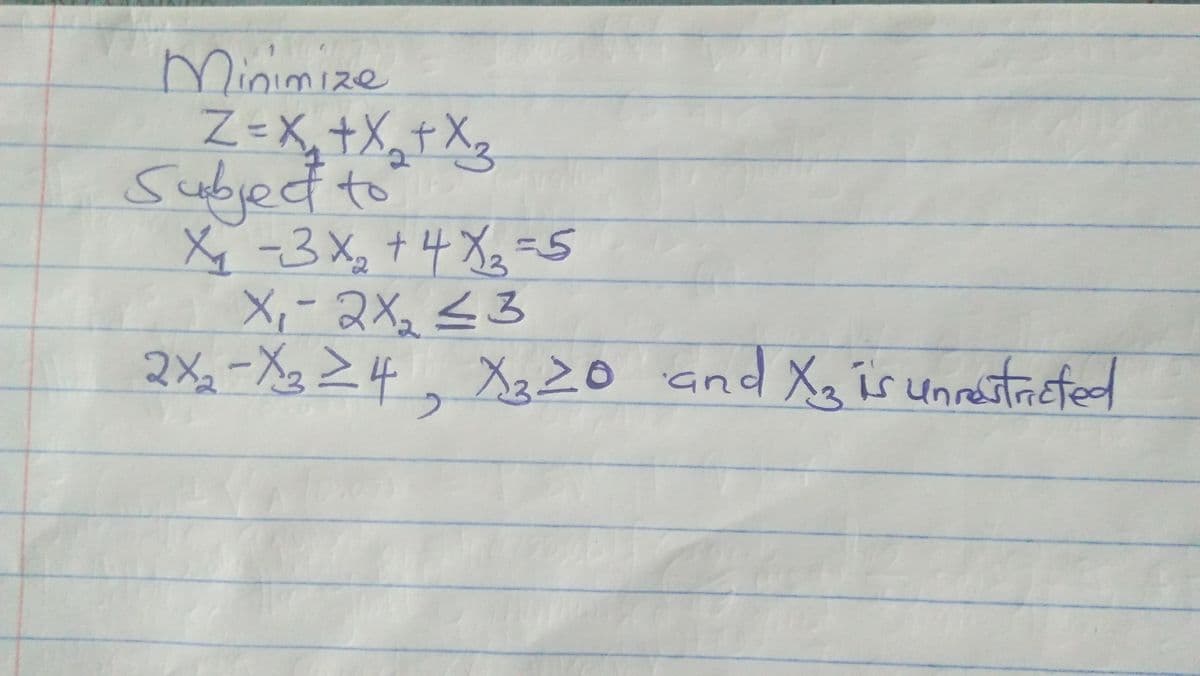 Minimize
Z = X₁ + X₂ + X₃
Subject to
X₁ - 3X₂ + 4X₃ = 5
X₁ - 2X₂ ≤ 3
2X₂ - X₃ ≥ 4, X₃ ≥ 0 and X₃ is unrestricted